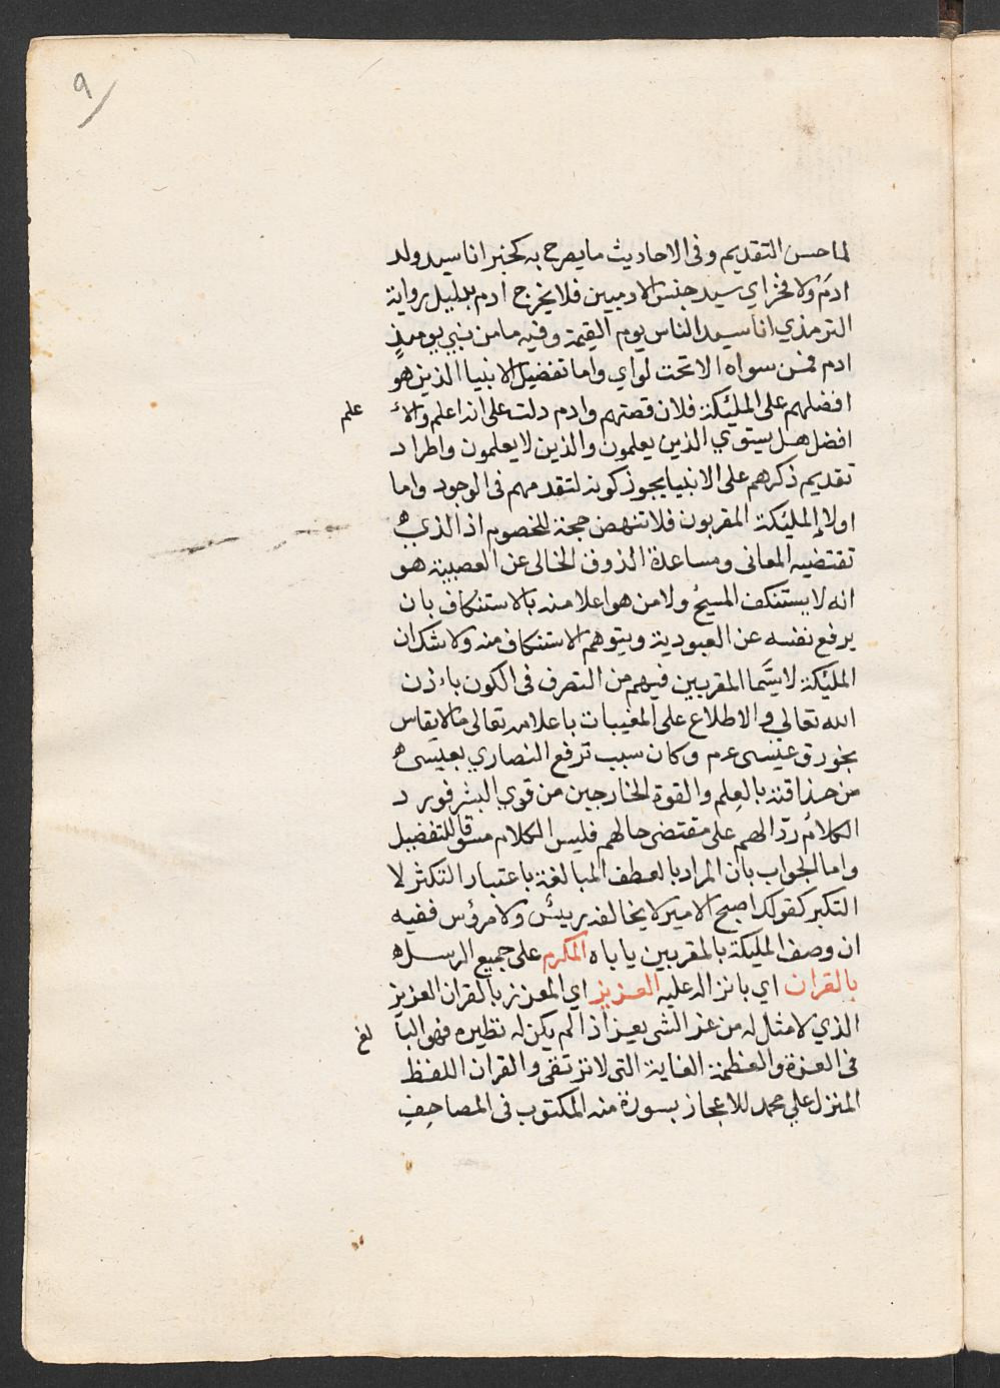 ٩
لما حسن التقديم وفى الاحاديث ما يصرح به كخبر انا سيد ولد
ادم ولا فخر اي سيد جنس الادميين فلا يخرج ادم بدليل رواية
الترمذي انا سيد الناس يوم القيمة وفيه ما من نبي يوميذٍ
ادم فمن سواه الا تحت لواي واما تفضيل الانبيا الذين هو
افضلهم على المليكة فلان قصتهم وادم دلت على انه اعلم والا
علم
افضل هل يستوي الذين يعلمون والذين لا يعلمون واطراد
تقديم ذكرهم على الانبيا يجوز كونه لتقدمهم فى الوجود واما
اولا المليكة المقربون فلا تنهض حجة للخصوم اذ الذي
تقتضيه المعانى ومساعدة الذوق الخالى عن العصبية هو
انه لا يستنكف المسيح ولا من هو اعلا منه بالاستنكاف بان
يرفع نفسه عن العبودية ويتوهم الاستنكاف منه ولا شك ان
المليكة لا سيَّما المقربين فيهم من التصرف فى الكون باذن
الله تعالى والاطلاع على المغيبات باعلامه تعالى مالايقاس
بخورق عيسى عم وكان سبب ترفع النصاري بعيسى
من حذاقته بالعِلم والقوة الخارجين من قوي البشر فورد
الكلامُ ردّا لهم على مقتضى حالهم فليس الكلام مسوقا للتفضيل
واما الجواب بان المراد بالعطف المبالغة باعتبار التكثر لا
التكبر كقولك اصبح الامير لا يخالفه رييس ولا مرؤس ففيه
ان وصف المليكة بالمقربين ياباه المكرم على جميع الرسل
بالقران اي بانزاله عليه العزيز اي المعزز بالقران العزيز
الذي لا مثل له من عز الشى يعز اذا لم يكن له نظيره فهو البا
لغ
فى العزة والعظمة الغاية التى لا ترتقى والقران اللفظ
المنزل علي محمد للاعجاز بسورة منه المكتوب فى المصاحف